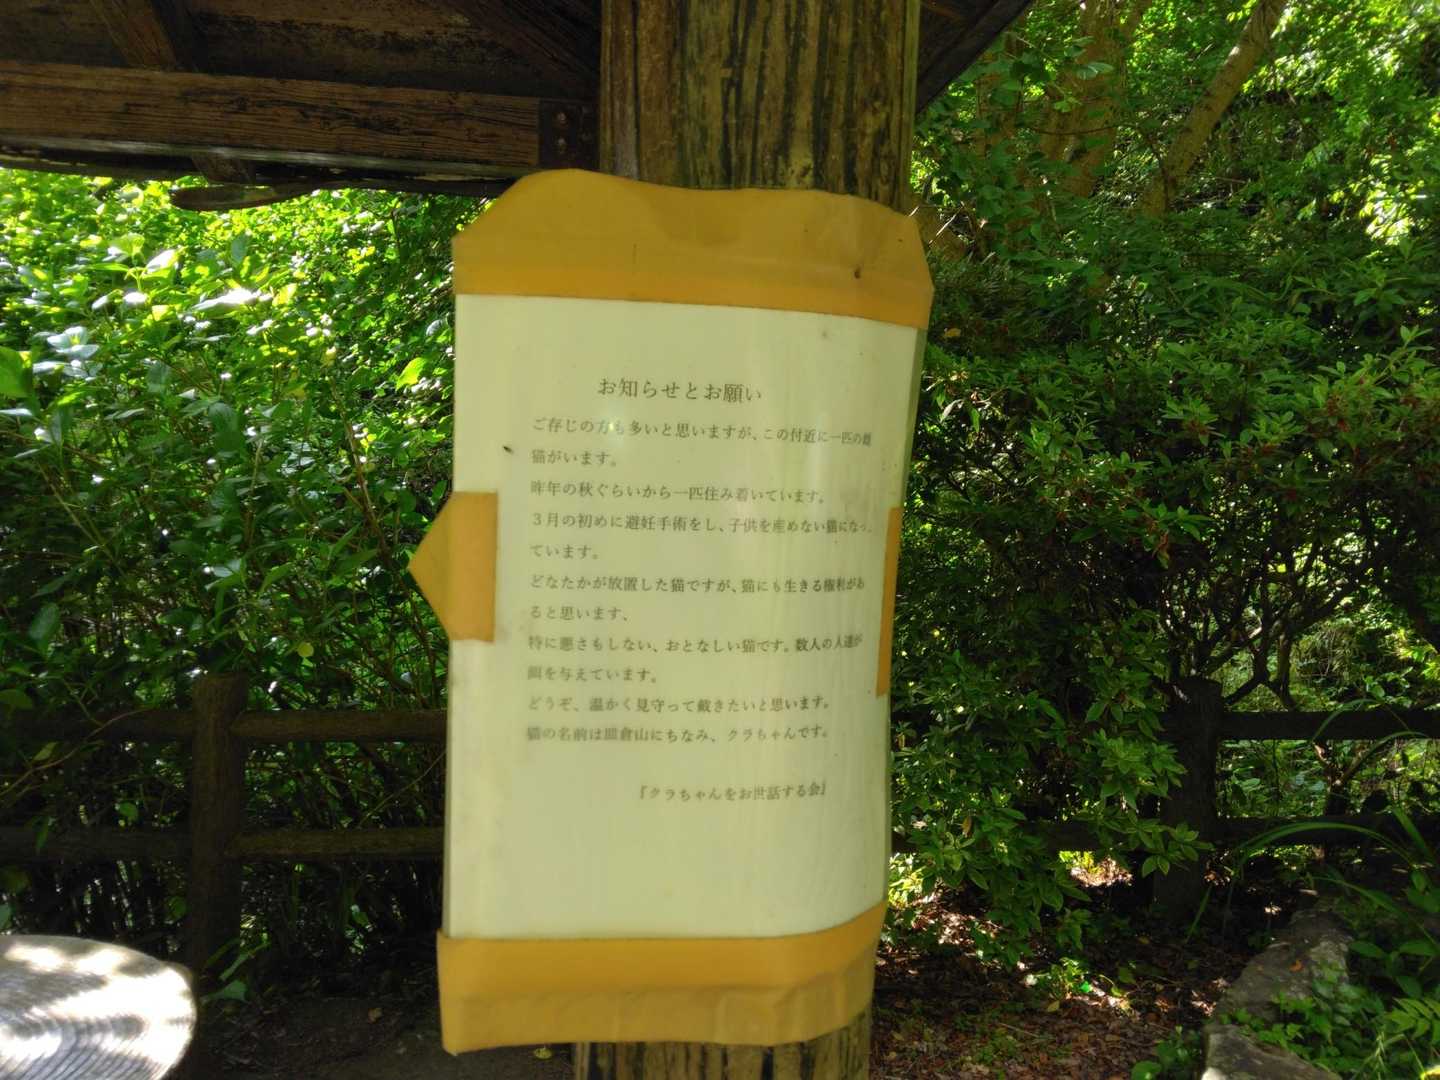 お知らせとお願い
ご存じの方も多いと思いますが、この付近に一匹の雌
猫がいます。
昨年の秋ぐらいから一匹住み着いています。
３月の初めに避妊手術をし、子供を産めない猫になっ
ています。
どなたかが放置した猫ですが、猫にも生きる権利があ
ると思います、
特に悪さもしない、おとなしい猫です。数人の人達が
餌を与えています。
どうぞ、温かく見守って戴きたいと思います。
猫の名前は皿倉山にちなみ、クラちゃんです。
『クラちゃんをお世話する会』